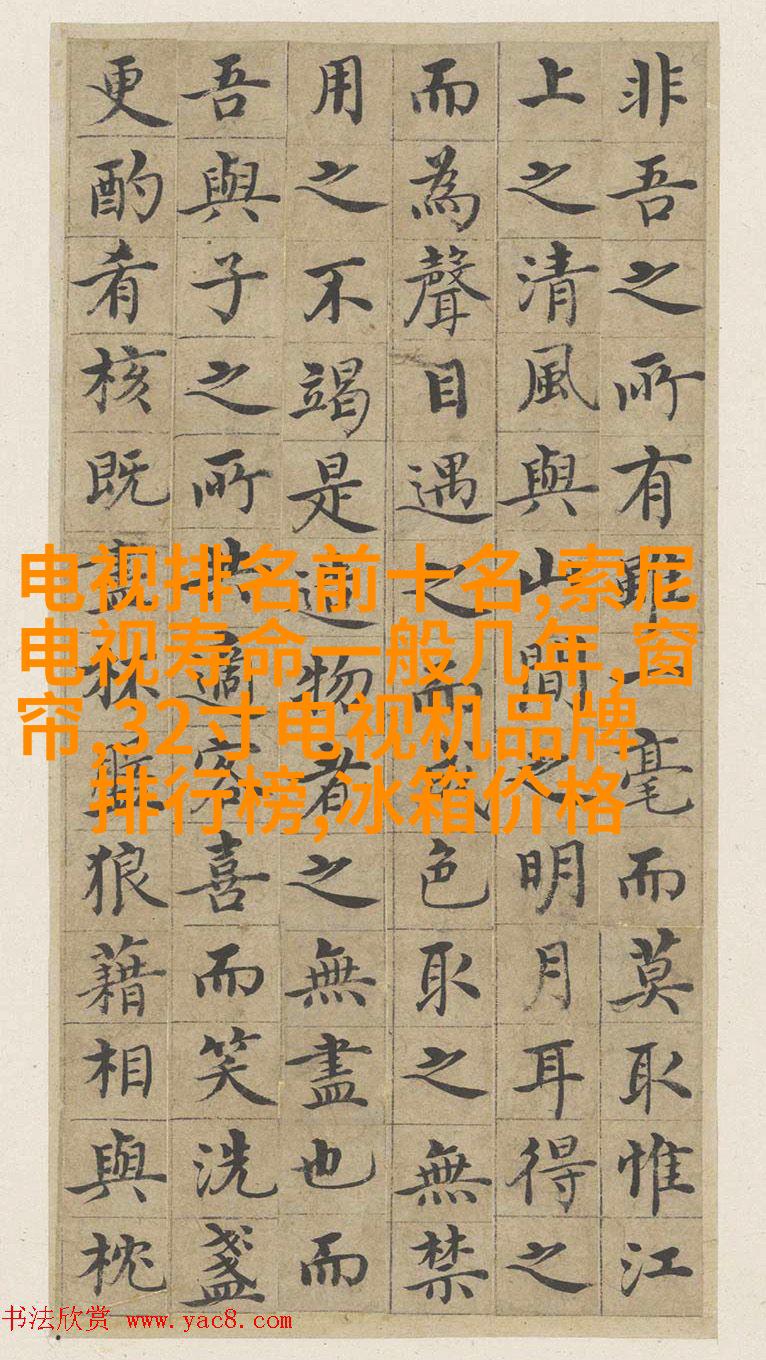 非吾之所有雖一毫而莫取惟江
上之清風與山間之明月耳得之
而為聲目遇之而成色取之無禁
用之不竭是造物者之無盡也而
吾與子之所共適客喜而笑洗盞
更酌肴核既盡杯盤狼藉相與枕
电视排名前十名,索尼
电视寿命一般几年,窗
帘,32寸电视机品牌
排行榜,冰箱价格
书法欣赏 www.yac8.com